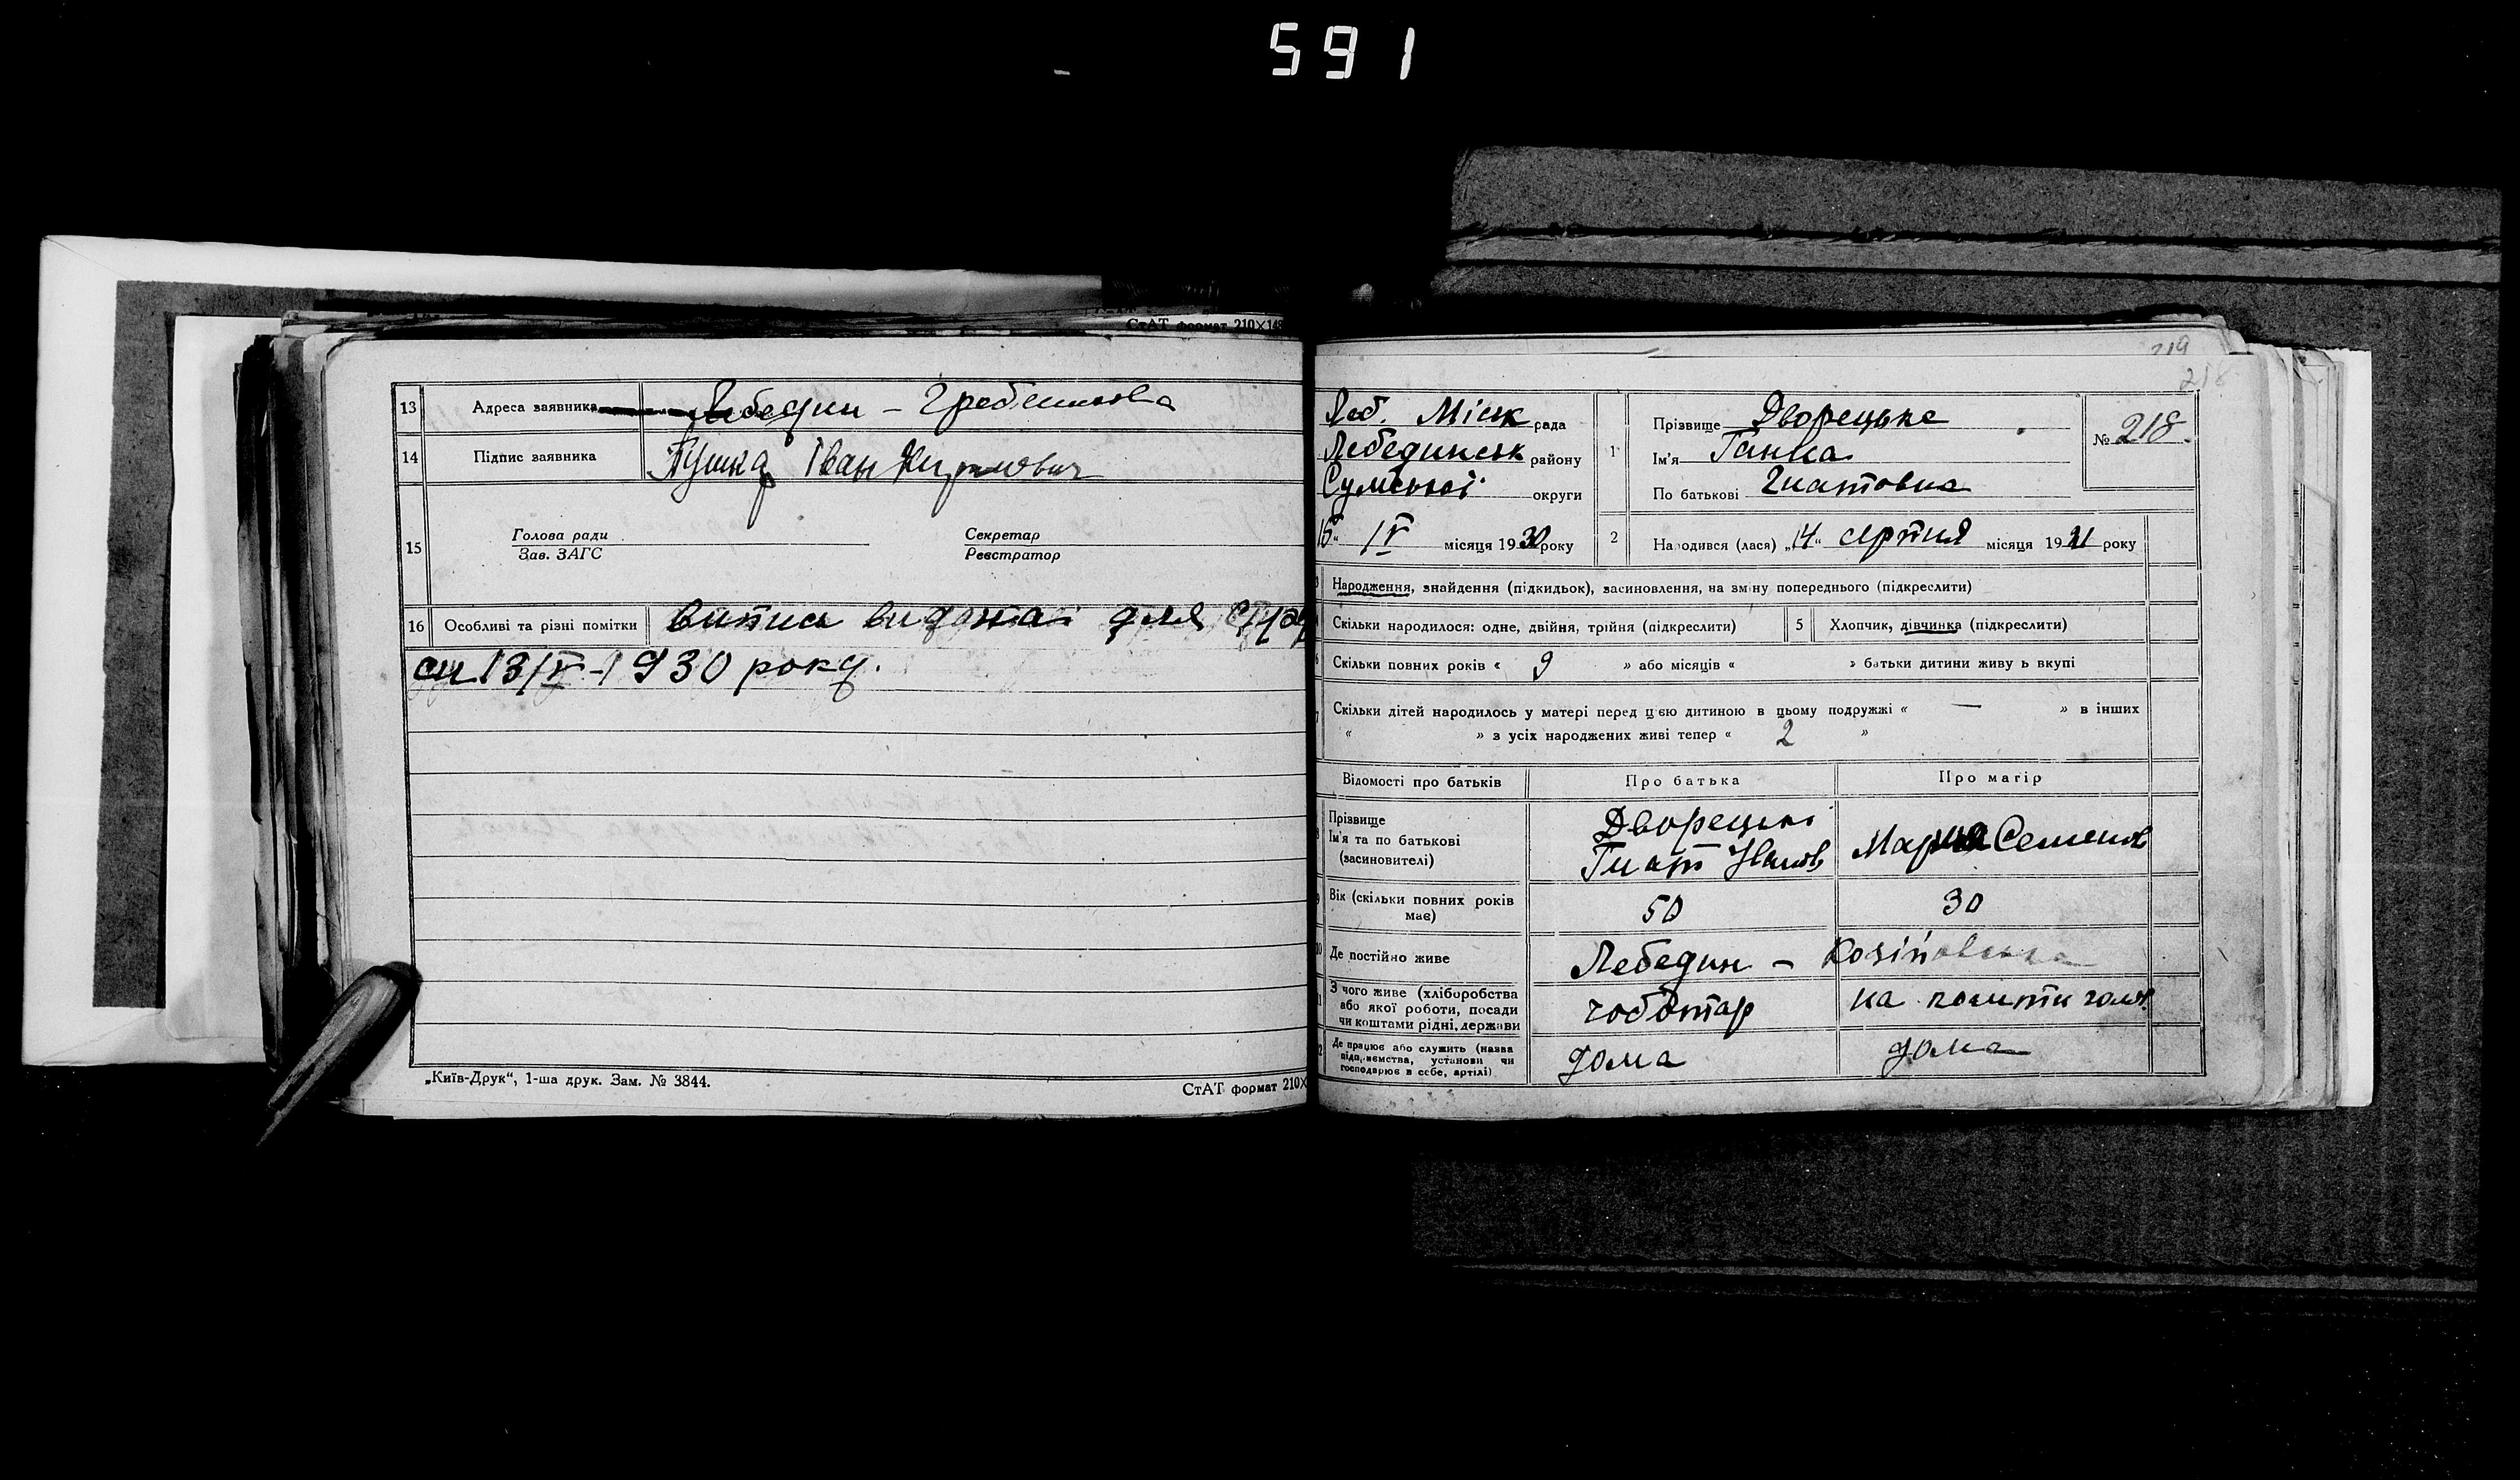 591
СтАТ формат 210×148
13 Адреса заявника Лебедин – Гребенькова
14 Підпис заявника Пушкар Іван Кирилович
15 Голова ради
Зав. ЗАГС
Секретар
Реєстратор
16 Особливі та різні помітки Витпись видана для
13/IV-1930 року.
„Київ-Друк“, 1-ша друк. Зам. № 3844.
СтАТ формат 210×
219
218
Леб. Міськ рада
Лебединськ району
Сумської округи
15 „ IV місяця 1930 року
1 Прізвище Дворецька
Ім'я Ганна
По батькові Гнатовна
№ 218.
2 Народився (лася) „14“ серпня місяця 1921 року
Народження, знайдення (підкидьок), засиновлення, на зміну попереднього (підкреслити)
Скільки народилося: одне, двійня, трійня (підкреслити) 5 Хлопчик, дівчинка (підкреслити)
Скільки повних років « 9 » або місяців « » батьки дитини живуть вкупі
Скільки дітей народилось у матері перед цією дитиною в цьому подружжі « — » в інших
« » з усіх народжених живі тепер « 2 »
Відомості про батьків Про батька Про матір
Прізвище
Ім'я та по батькові
(засиновителі)
Дворецькі
Гнат Іванов
Мария Семенов
Вік (скільки повних років
має) 50 30
Де постійно живе Лебедин –
З чого живе (хліборобства
або якої роботи, посади
чи коштами рідні, держави
чоботар на
Де працює або служить (назва
підприємства, установи чи
господарює в себе, артілі)
дома дома